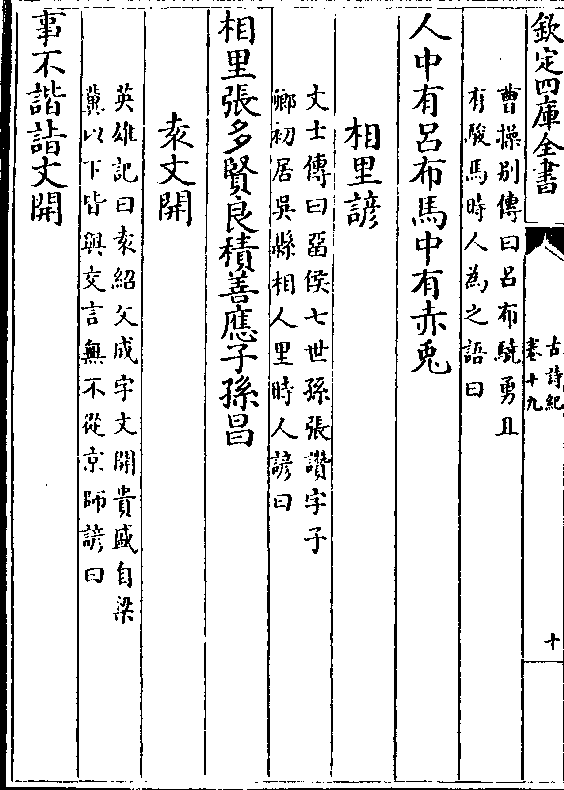 欽定四庫全書
古詩紀
卷十九
十
曹操别傳曰呂布驍勇且
有駿馬時人為之語曰
人中有呂布馬中有赤兎
相里諺
文士傳曰留侯七世孫張讚字子
卿初居吳縣相人里時人諺曰
相里張多賢良積善應子孫昌
袁文開
英雄記曰袁紹父成字文開貴盛自梁
冀以下皆與交言無不從京師諺曰
事不諧詣文開